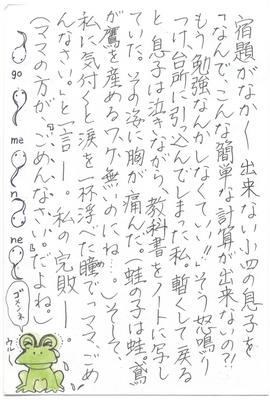 宿題がなかく出来ない小四の息子を
「なんでこんな簡単な計算が出来ないの?!
もう勉強なんかしなくていい!!」そう怒鳴り
つけ、台所に引っ込んでしまった私。暫くして戻る
と息子は泣きながら、教科書をノートに写し
ていた。その姿に胸が痛んだ。(蛙の子は蛙。鳶
が鷹を産めるワケ無いのにね…。)そして、
私に気付くと涙を一杯浮べた瞳で「ママ、ごめ
んなさい。」と一言ー。 私の完敗ー。
(ママの方が、『ごめんなさい。』だよね。)
go
me
n
ne
ゴメンネ
ウルー